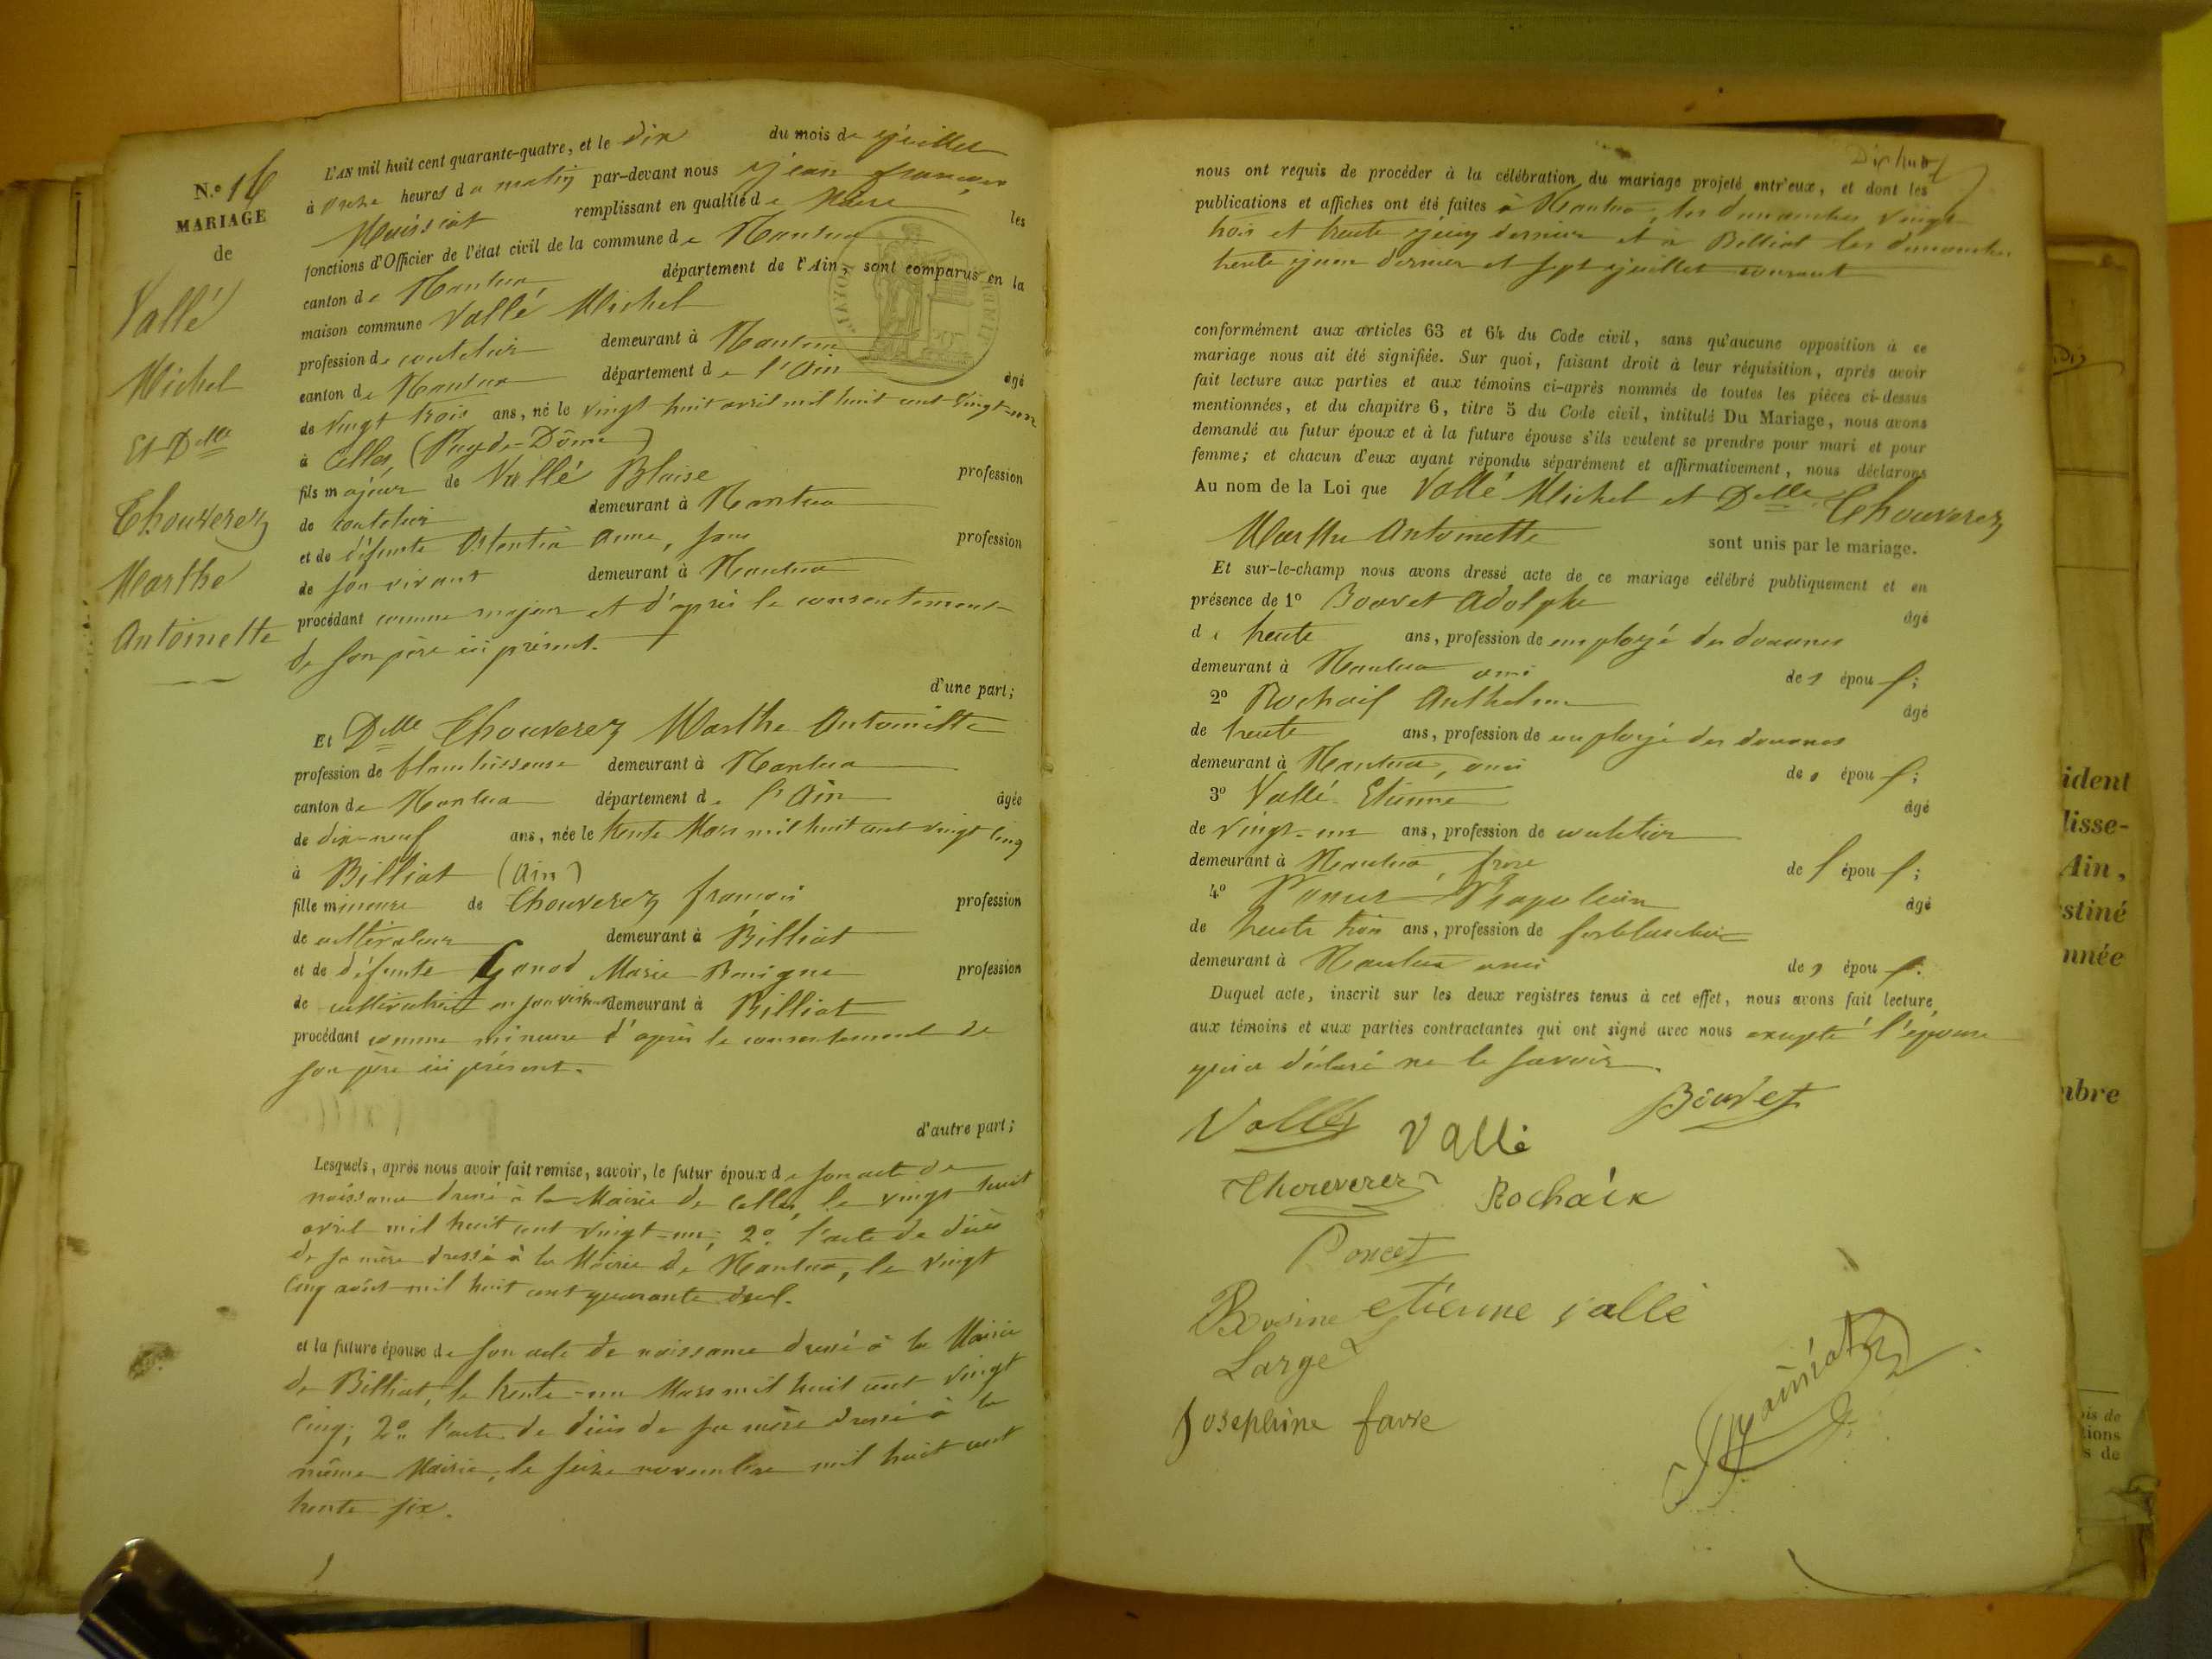 N.o 16
MARIAGE
de
Vallé
Michel
Et Delle
Chouverez
Marthe
Antoinette
L'AN mil huit cent quarante-quatre, et le dix du mois de juillet
à onze heures du matin par-devant nous jean françois
Maissiat remplissant en qualité de Maire les
fonctions d'Officier de l'état civil de la commune de Nantua
canton de Nantua département de l'Ain, sont comparus en la
maison commune Vallé Michel
profession de coutelier demeurant à Nantua
canton de Nantua département de l'Ain âgé
de vingt trois ans, né le vingt huit avril mil huit cent vingt-un
à Celles, (Puy-de-Dôme)
fils majeur de Vallé Blaise profession
de coutelier demeurant à Nantua
et de défunte Anne, sans profession
de son vivant demeurant à Nantua
procédant comme majeur et d'après le consentement
de son père ici présent.
d'une part;
Et Delle Chouverez Marthe Antoinette
profession de blanchisseuse demeurant à Nantua
canton de Nantua département de l'Ain âgée
de dix-neuf ans, née le trente Mars mil huit cent vingt cinq
à Billiat (Ain)
fille mineure de Chouverez françois profession
de cultivateur demeurant à Billiat
et de défunte Gonod Marie Benigne profession
de cultivatrice en son vivant demeurant à Billiat
procédant comme mineure d'après le consentement de
son père ici présent.
d'autre part;
Lesquels, après nous avoir fait remise, savoir, le futur époux de son acte de
naissance dressé à la Mairie de Celles, le vingt-huit
avril mil huit cent vingt-un; 2o l'acte de décès
de sa mère dressé à la Mairie de Nantua, le vingt
cinq août mil huit cent quarante
et la future épouse de son acte de naissance dressé à la Mairie
de Billiat, le trente-un Mars mil huit cent vingt
cinq; 2o l'acte de décès de sa mère dressé à la
même Mairie, le seize novembre mil huit cent
trente six.
Dix huit
nous ont requis de procéder à la célébration du mariage projeté entr'eux, et dont les
publications et affiches ont été faites à Nantua, les dimanches vingt
trois et trente juin dernier et à Billiat les dimanches
trente juin dernier et sept juillet courant
conformément aux articles 63 et 64 du Code civil, sans qu'aucune opposition à ce
mariage nous ait été signifiée. Sur quoi, faisant droit à leur réquisition, après avoir
fait lecture aux parties et aux témoins ci-après nommés de toutes les pièces ci-dessus
mentionnées, et du chapitre 6, titre 5 du Code civil, intitulé Du Mariage, nous avons
demandé au futur époux et à la future épouse s'ils veulent se prendre pour mari et pour
femme; et chacun d'eux ayant répondu séparément et affirmativement, nous déclarons
Au nom de la Loi que Vallé Michel et Delle Chouverez
Marthe Antoinette sont unis par le mariage.
Et sur-le-champ nous avons dressé acte de ce mariage célébré publiquement et en
présence de 1o Bouvet Adolphe âgé
de trente ans, profession de employé des douanes
demeurant à Nantua ami des époux;
2o Rochaix Anthelme âgé
de trente ans, profession de employé des douanes
demeurant à Nantua, ami des époux;
3o Vallé Etienne âgé
de vingt-un ans, profession de coutelier
demeurant à Nantua, frère de l'époux;
4o Poncet Napoléon âgé
de trente trois ans, profession de ferblantier
demeurant à Nantua ami des époux.
Duquel acte, inscrit sur les deux registres tenus à cet effet, nous avons fait lecture
aux témoins et aux parties contractantes qui ont signé avec nous excepté l'épouse
qui a déclaré ne le savoir.
Vallé Vallé Bouvet
Chouverez Rochaix
Poncet
Rosine etienne vallé
Large
Josephine favre
Maissiat
ident
lisse-
Ain,
stiné
nnée
mbre